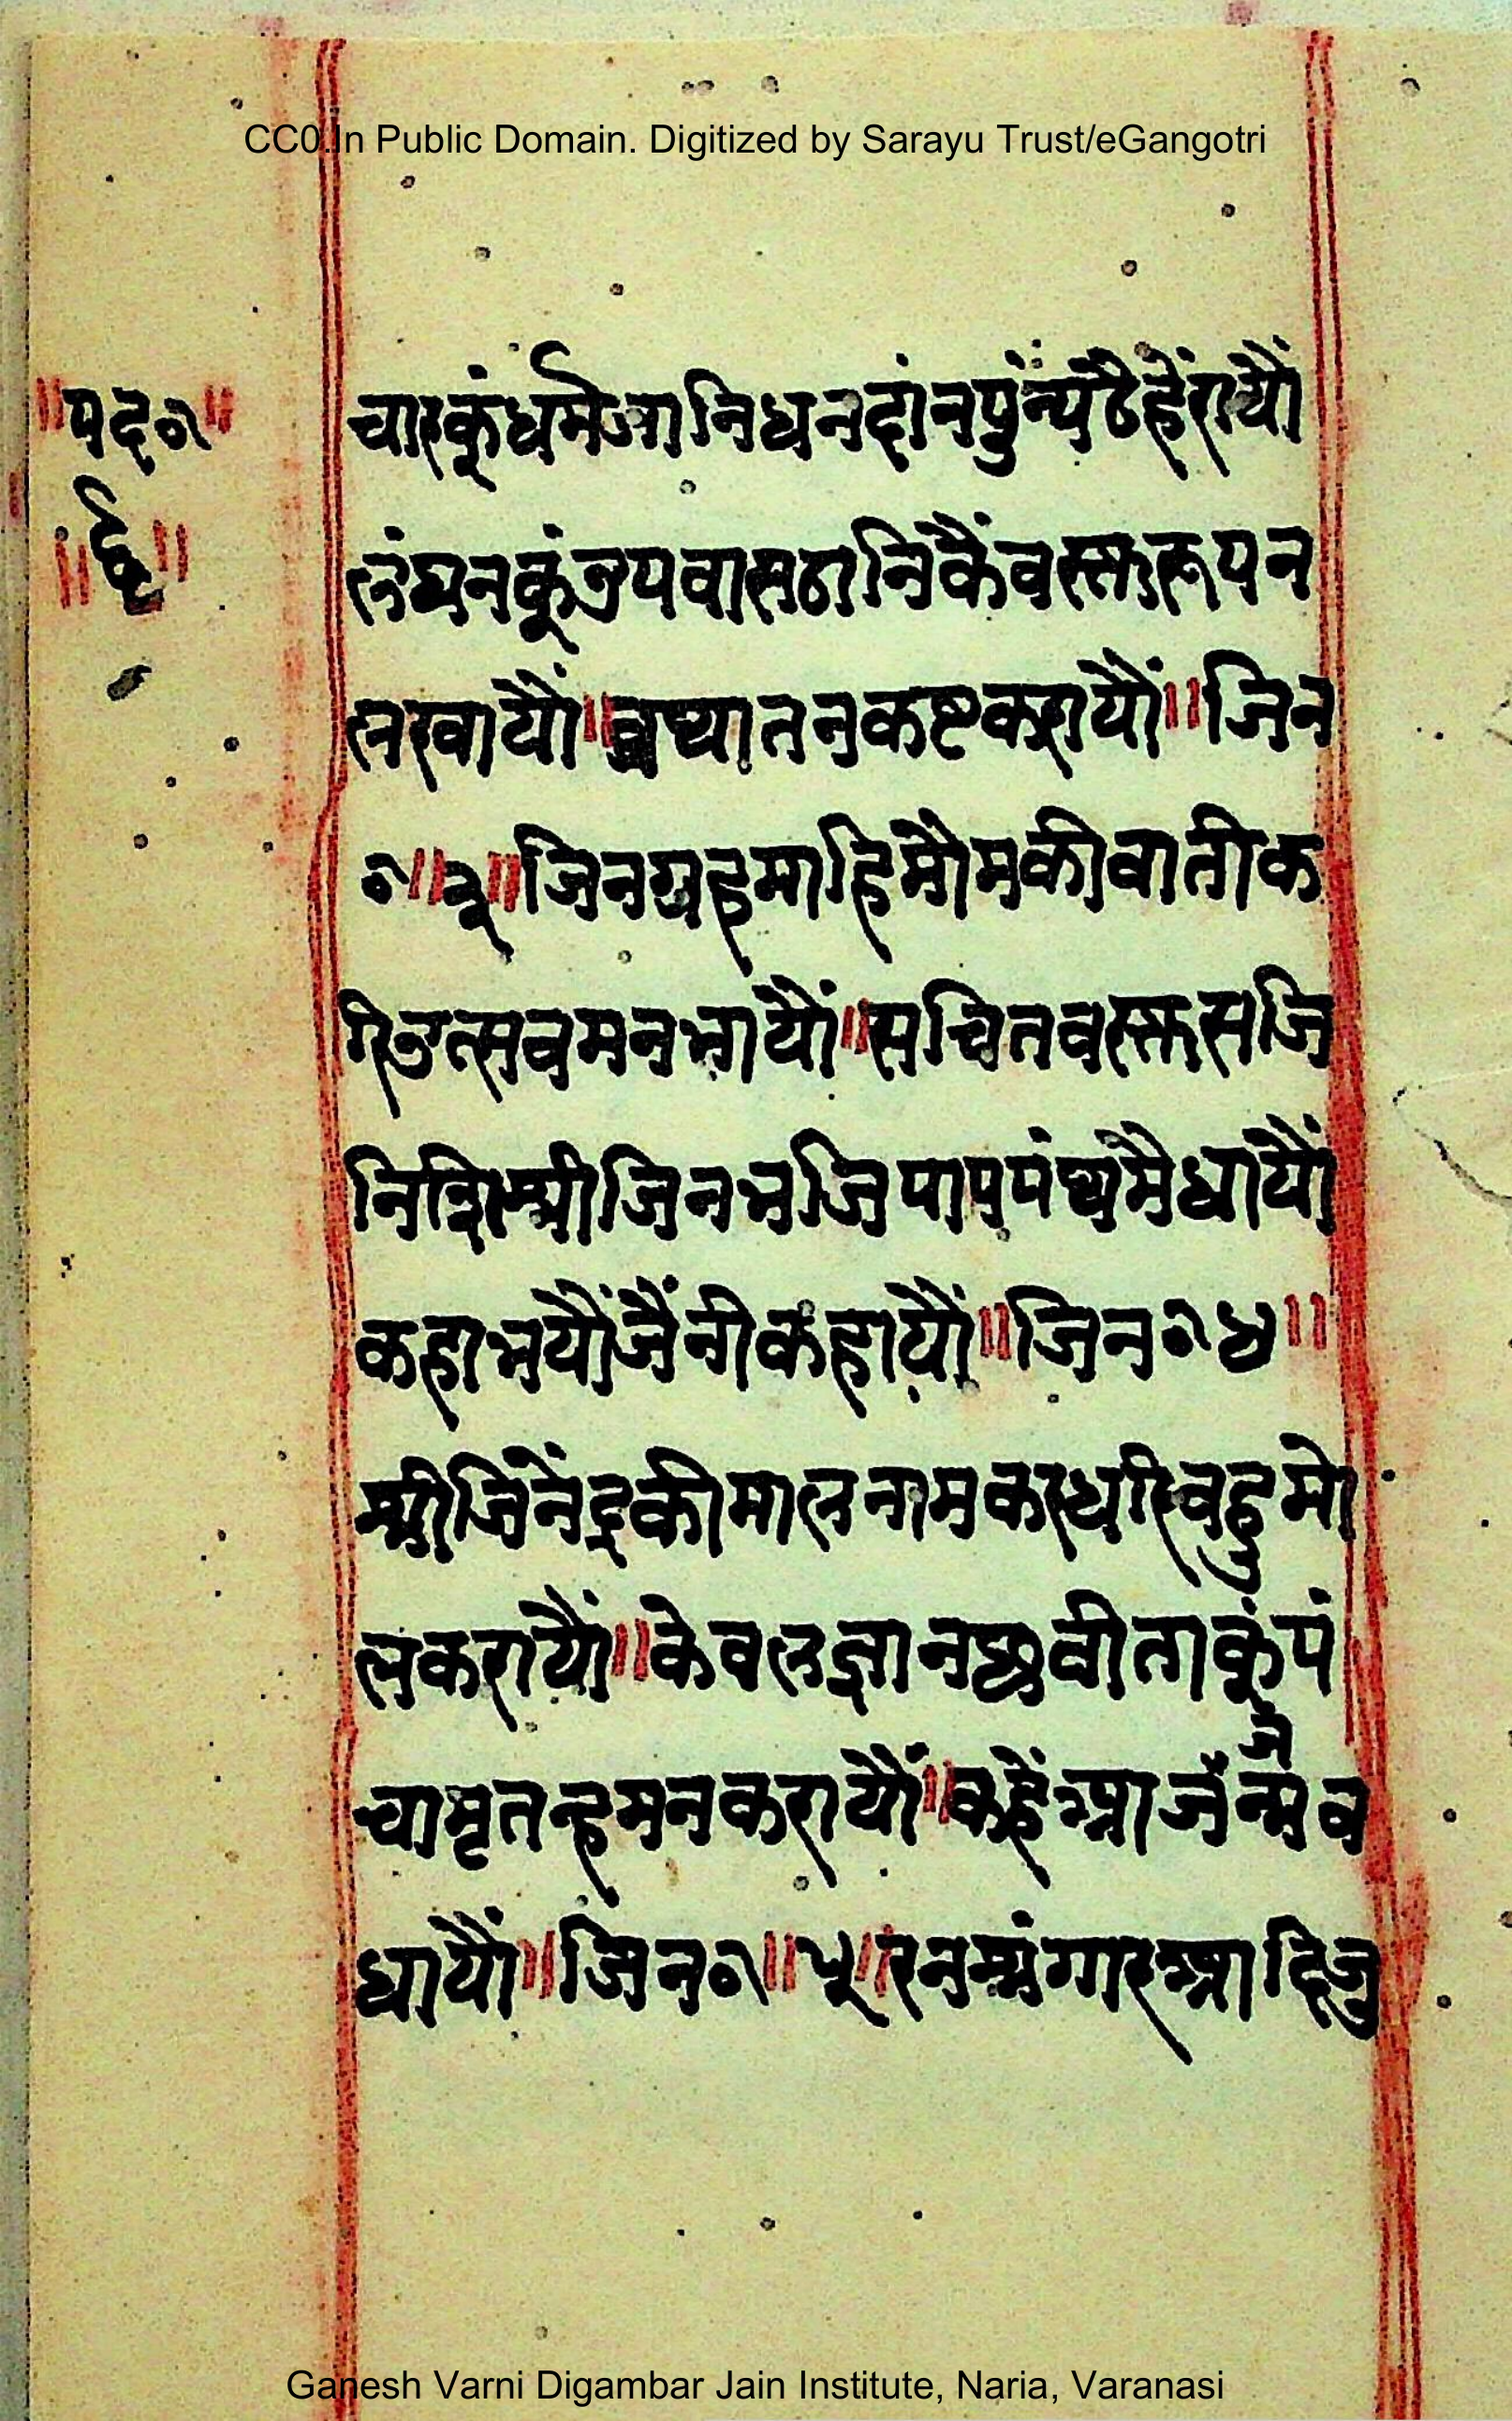 CC0.In Public Domain. Digitized by Sarayu Trust/eGangotri
॥पद०॥
चारकूंधर्मजानिधनदांनपुंन्यठैहेंरायौं
लंघनकूंउपवासठानिकैंवस्तरूपन
लखायौं॥व्रथातनकष्टकरायौं॥जिन
०॥३॥जिनग्रहमाहिमौमकीवातीक
रिउत्सवमनभायौं॥सचितवस्तसजि
निशिश्रीजिनभजिपापपंथमैधायौं
कहाभयौंजैंनीकहायौं॥जिन०४॥
श्रीजिनेंद्रकीमालनामकरधरिवहुमो
लकरायौं॥केवलज्ञानछवीताकूंपं
चामृतन्हमनकरायौं॥कहैंआजंन्मव
जै
धायौं॥जिन०॥५॥रनश्रंगारआदिजु
Ganesh Varni Digambar Jain Institute, Naria, Varanasi